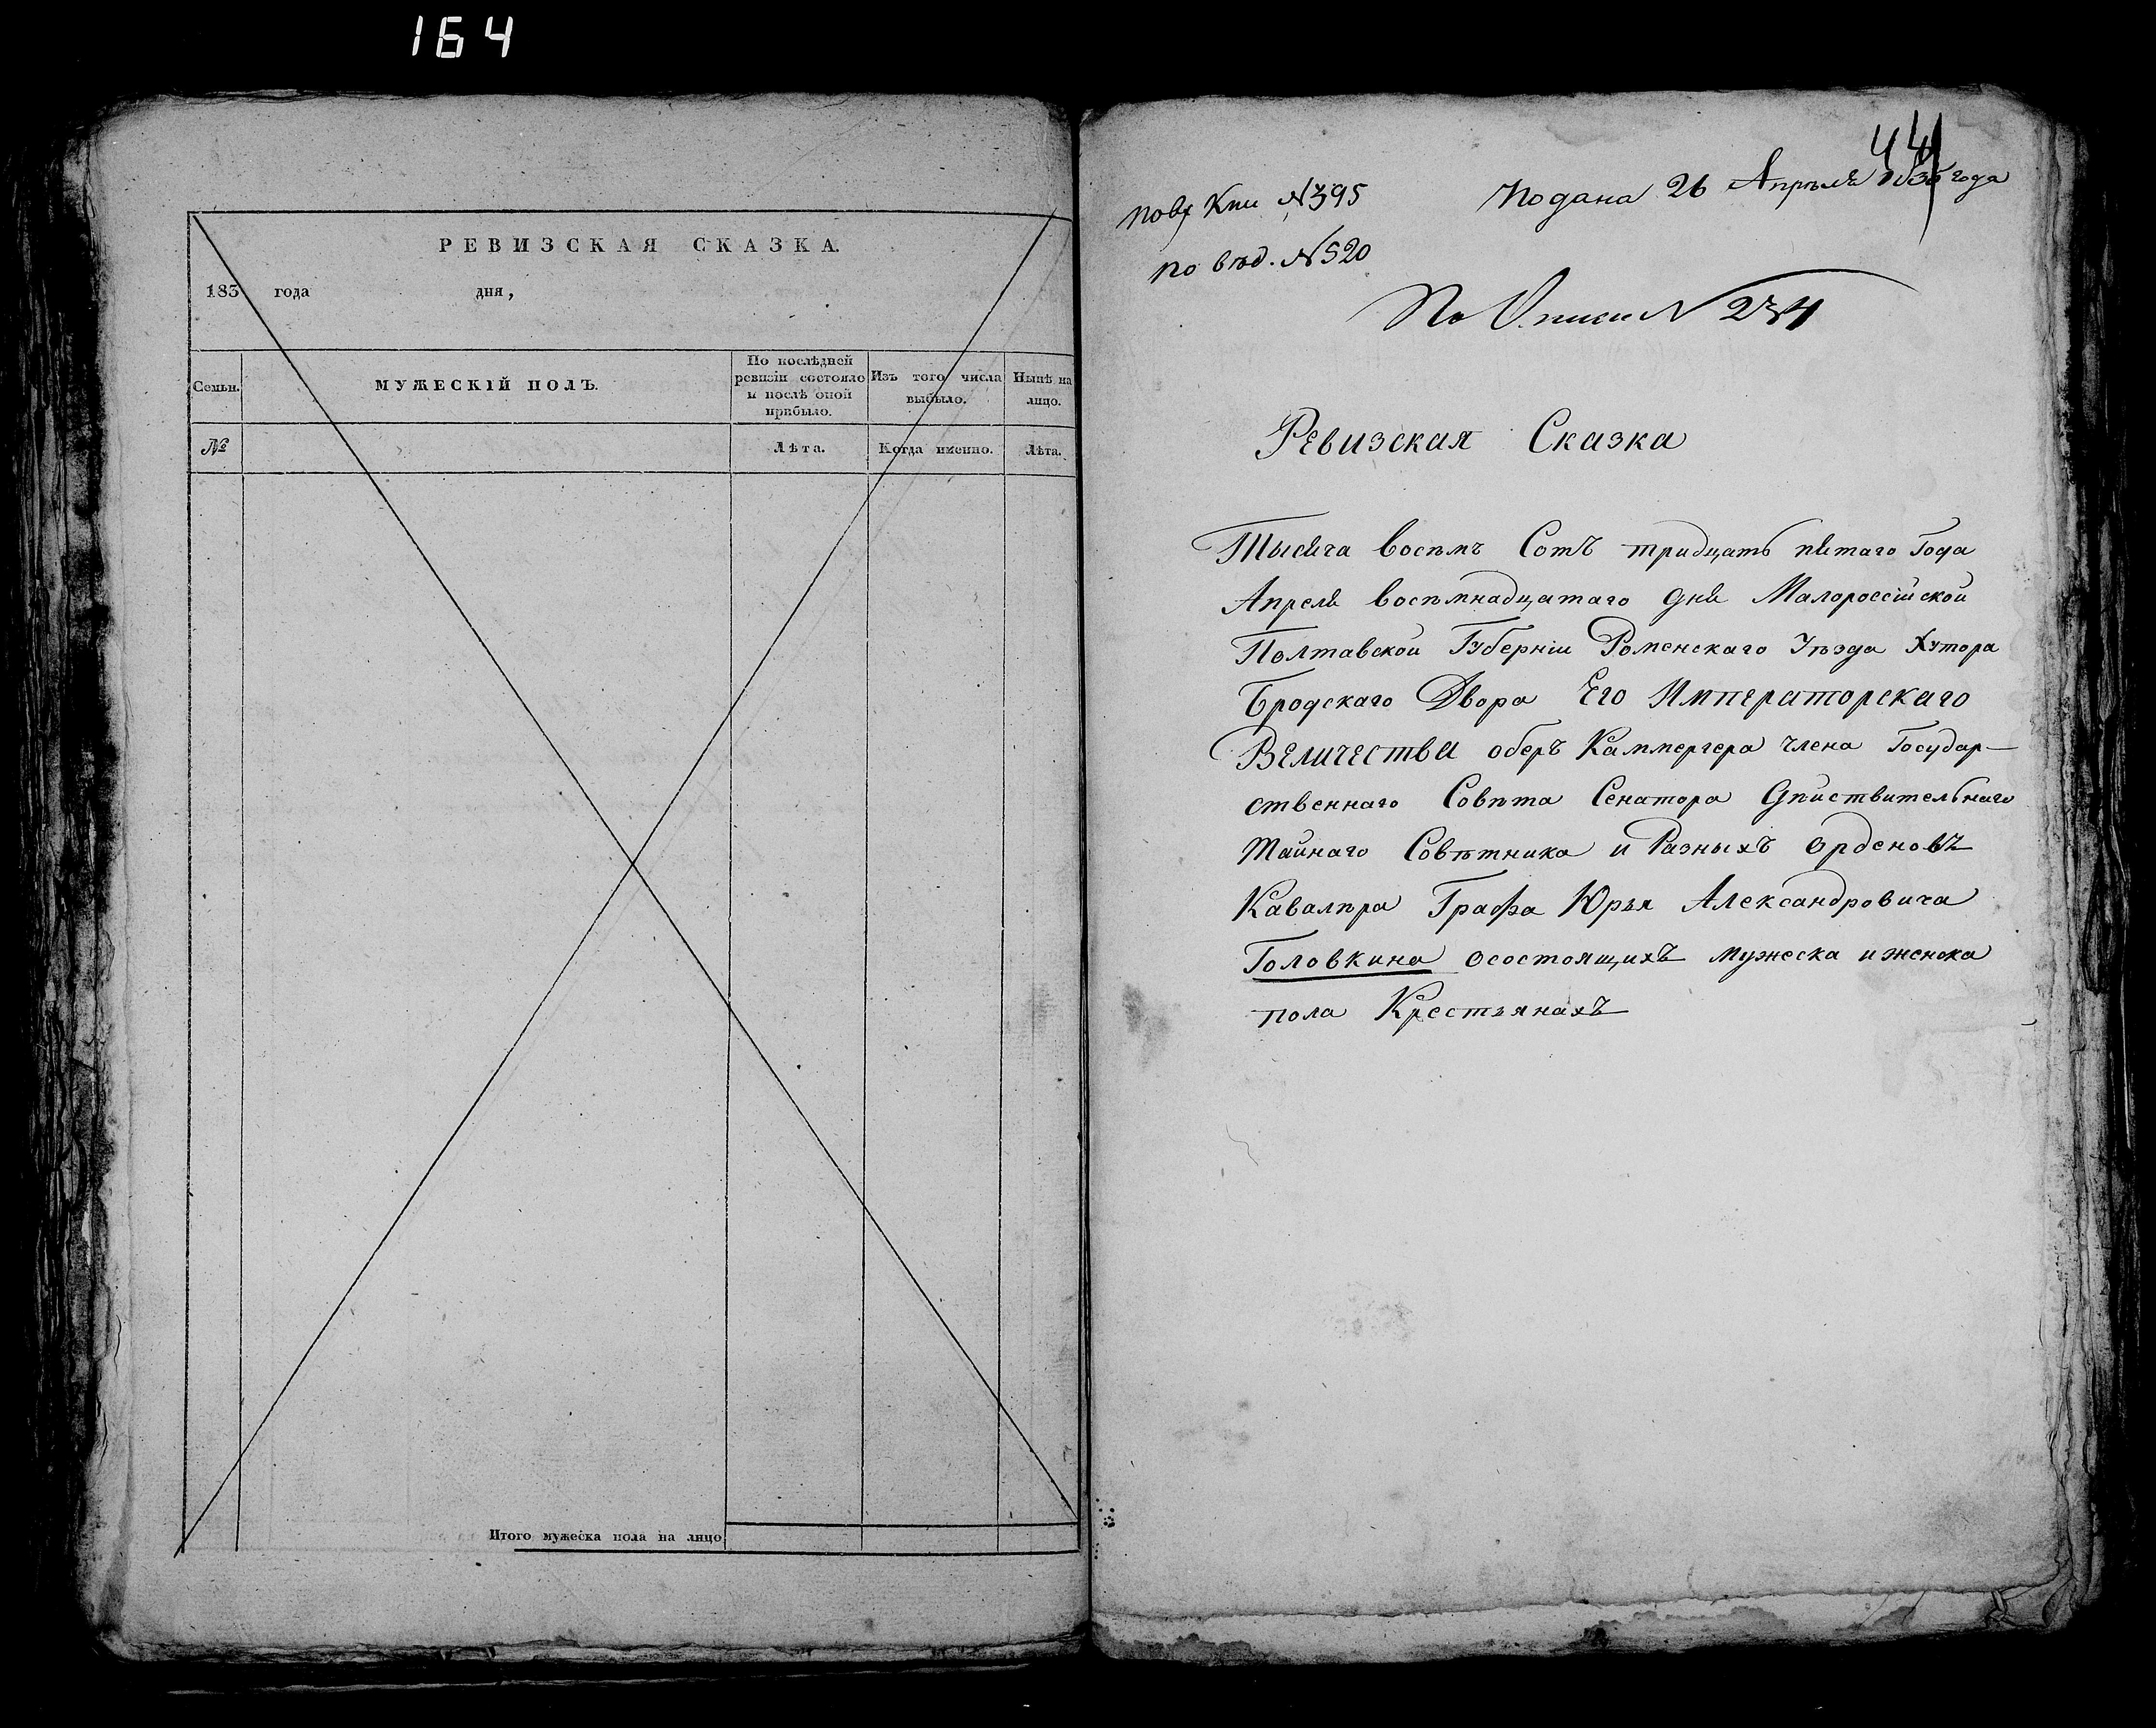 164
РЕВИЗСКАЯ СКАЗКА.
183 года дня,
Семьи.
МУЖЕСКІЙ ПОЛЪ.
По послѣдней
ревизіи состояло
и послѣ оной
прибыло.
Изъ того числа
выбыло.
Нынѣ на
лицо.
№
Лѣта.
Когда именно.
Лѣта.
Итого мужеска пола на лицо
44
Подана 26 Апрѣля года
Кни №395
по вѣд. №520
По Описи № 234
Ревизская Сказка
Тысяча восемъ Сотъ тридцать пятаго Года
Апреля восемнадцатаго дня Малороссійской
Полтавской Губерніи Роменскаго Уѣзда Хутора
Бродскаго Двора Его Императорскаго
Величества оберъ Каммергера члена Государ-
ственнаго Совѣта Сенатора Дѣйствительнаго
Тайнаго Совѣтника и Разныхъ Орденовъ
Кавалѣра Графа Юрья Александровича
Головкина осостоящихъ мужеска и женска
пола Крестьянахъ